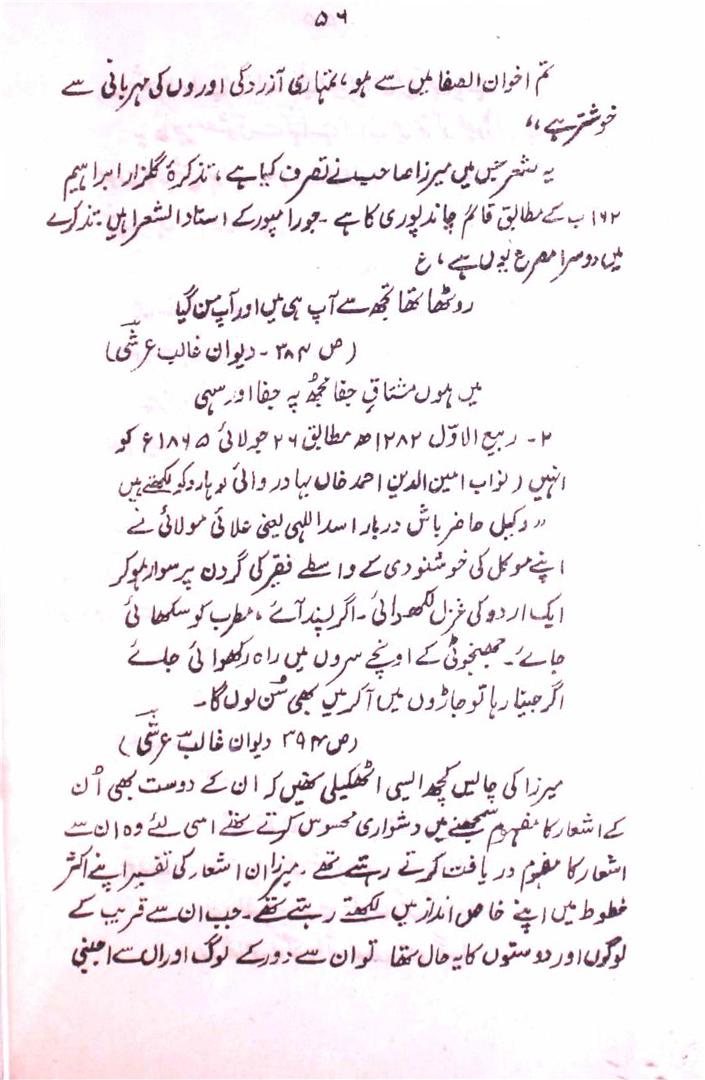 ۵۶
تم اخوان الصفا میں سے ہو، تمہاری آزردگی اوروں کی مہربانی سے
خوشتر ہے،،
یہ شعر جس میں میرزا صاحب نے تصرف کیا ہے، تذکرۂ گلزار ابراہیم
۱۶۲ ب کے مطابق قائم چاندپوری کا ہے ۔ جو رامپور کے استاد الشعرا ہیں ۔ تذکرے
میں دوسرا مصرع یوں ہے، ع
روٹھا تھا تجھ سے آپ ہی میں اور آپ من گیا
(ص ۳۸۴ ۔ دیوان غالب عرشی)
میں ہوں مشتاقِ جفا مجھ پہ جفا اور سہی
۲ ۔ ربیع الاوّل ۱۲۸۲ھ مطابق ۲۶ جولائی ۱۸۶۵ء کو
انہیں (نواب امین الدین احمد خاں بہادر والئ لوہارو کو لکھتے ہیں
،، وکیل حاضر باش دربار اسد اللہی یعنی علائی مولائی نے
اپنے موکل کی خوشنودی کے واسطے فقیر کی گردن پر سوار ہو کر
ایک اردو کی غزل لکھوائی ۔ اگر پسند آئے، مطرب کو سکھائی
جائے ۔ جھنجھوٹی کے اونچے سروں میں راہ رکھوائی جائے
اگر جیتا رہا تو جاڑوں میں آ کر میں بھی سُن لوں گا ۔
(ص ۳۹۴ دیوان غالب عرشی)
میرزا کی چالیں کچھ ایسی اٹھکیلی تھیں کہ ان کے دوست بھی اُن
کے اشعار کا مفہوم سمجھنے میں دشواری محسوس کرتے تھے اسی لئے وہ ان سے
اشعار کا مفہوم دریافت کرتے رہتے تھے ۔ میرزا ان اشعار کی تفسیر اپنے اکثر
خطوط میں اپنے خاص انداز میں لکھتے رہتے تھے ۔ جب ان سے قریب کے
لوگوں اور دوستوں کا یہ حال تھا تو ان سے دور کے لوگ اور ان سے اجنبی